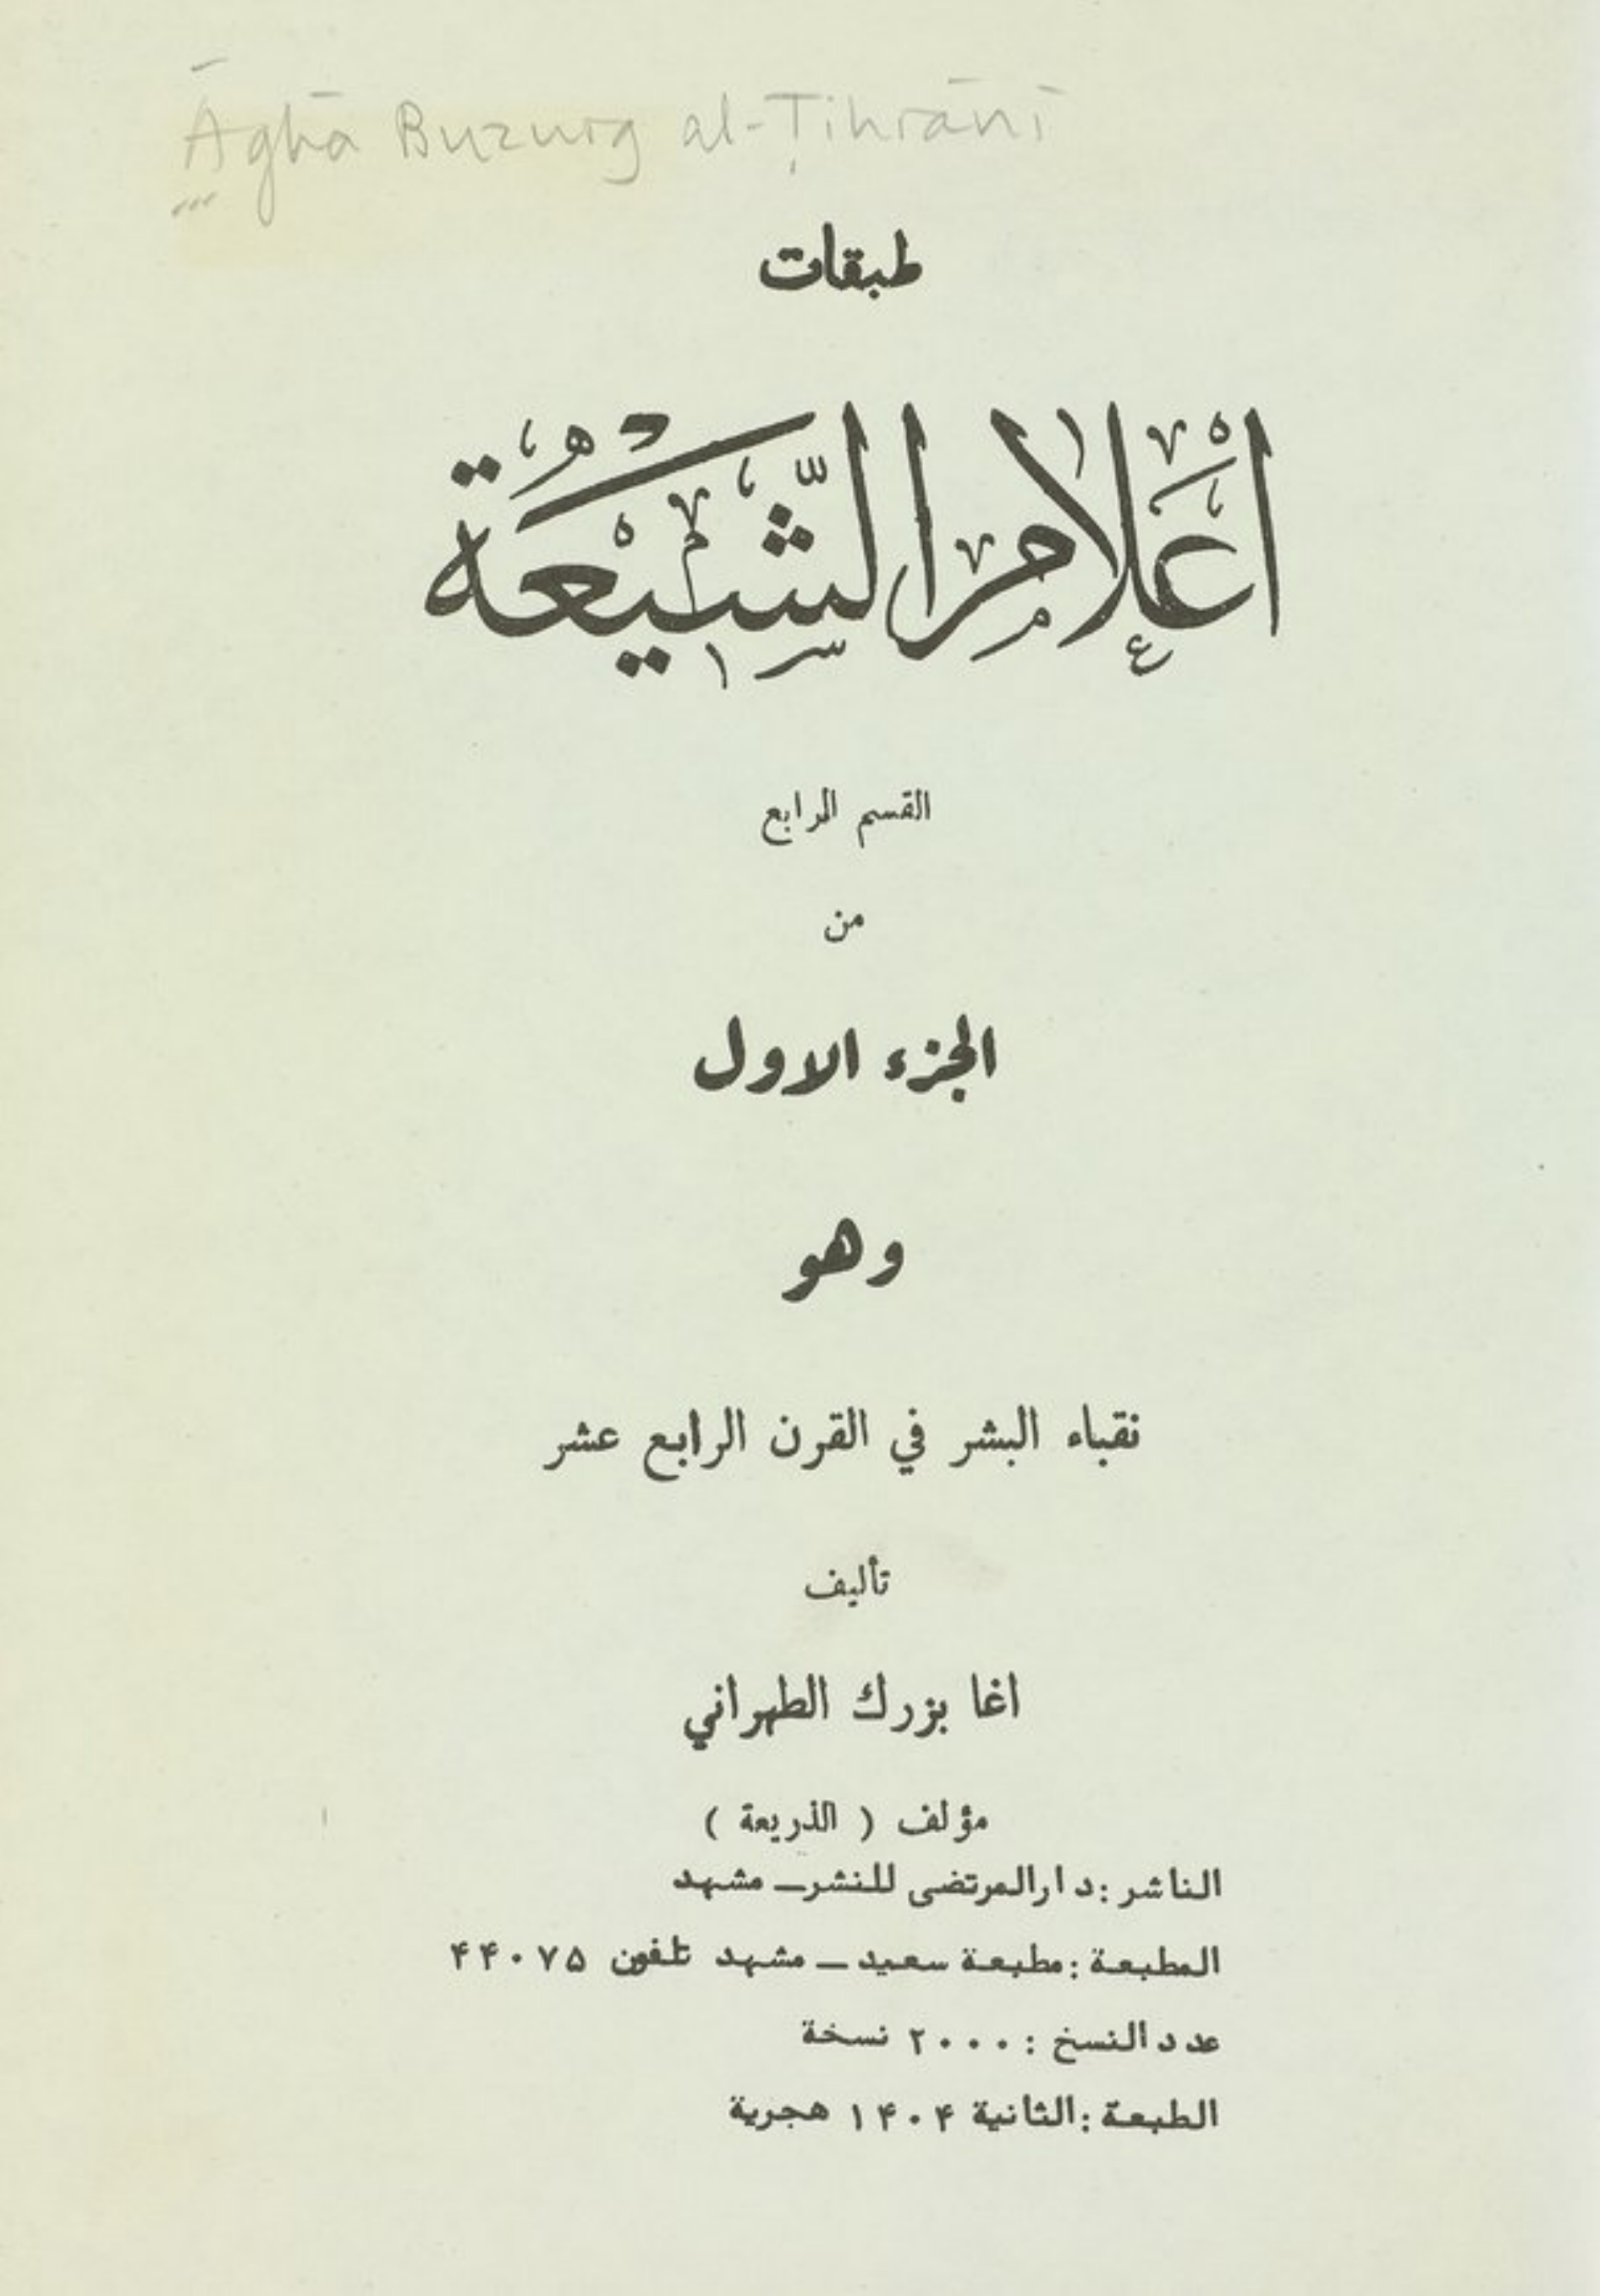 Āghā Buzurg al-Ṭihrānī
طبقات
أَعْلَامُ الشِّيْعَةِ
القسم الرابع
من
الجزء الاول
وهو
نقباء البشر في القرن الرابع عشر
تأليف
اغا بزرك الطهراني
مؤلف ( الذريعة )
الناشر :دارالمرتضى للنشر_ مشهد
المطبعة :مطبعة سعيد _ مشهد تلفون ۴۴۰۷۵
عدد النسخ : ۲۰۰۰ نسخة
الطبعة :الثانية ۱۴۰۴ هجرية